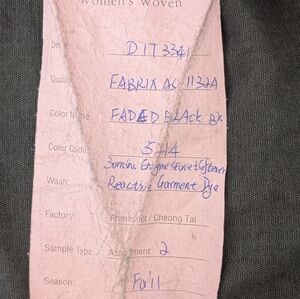 Women's Woven
D17 3341
Quality: FABRIX AS-1132A
Color Name: FADED BLACK BK
Color Code: 5214
30mins Enzyme stone + softener
Wash: Reactive Garment Dye
Factory: Primesjet / Cheong Tai
Sample Type: Assortment 2
Season: Fa'll